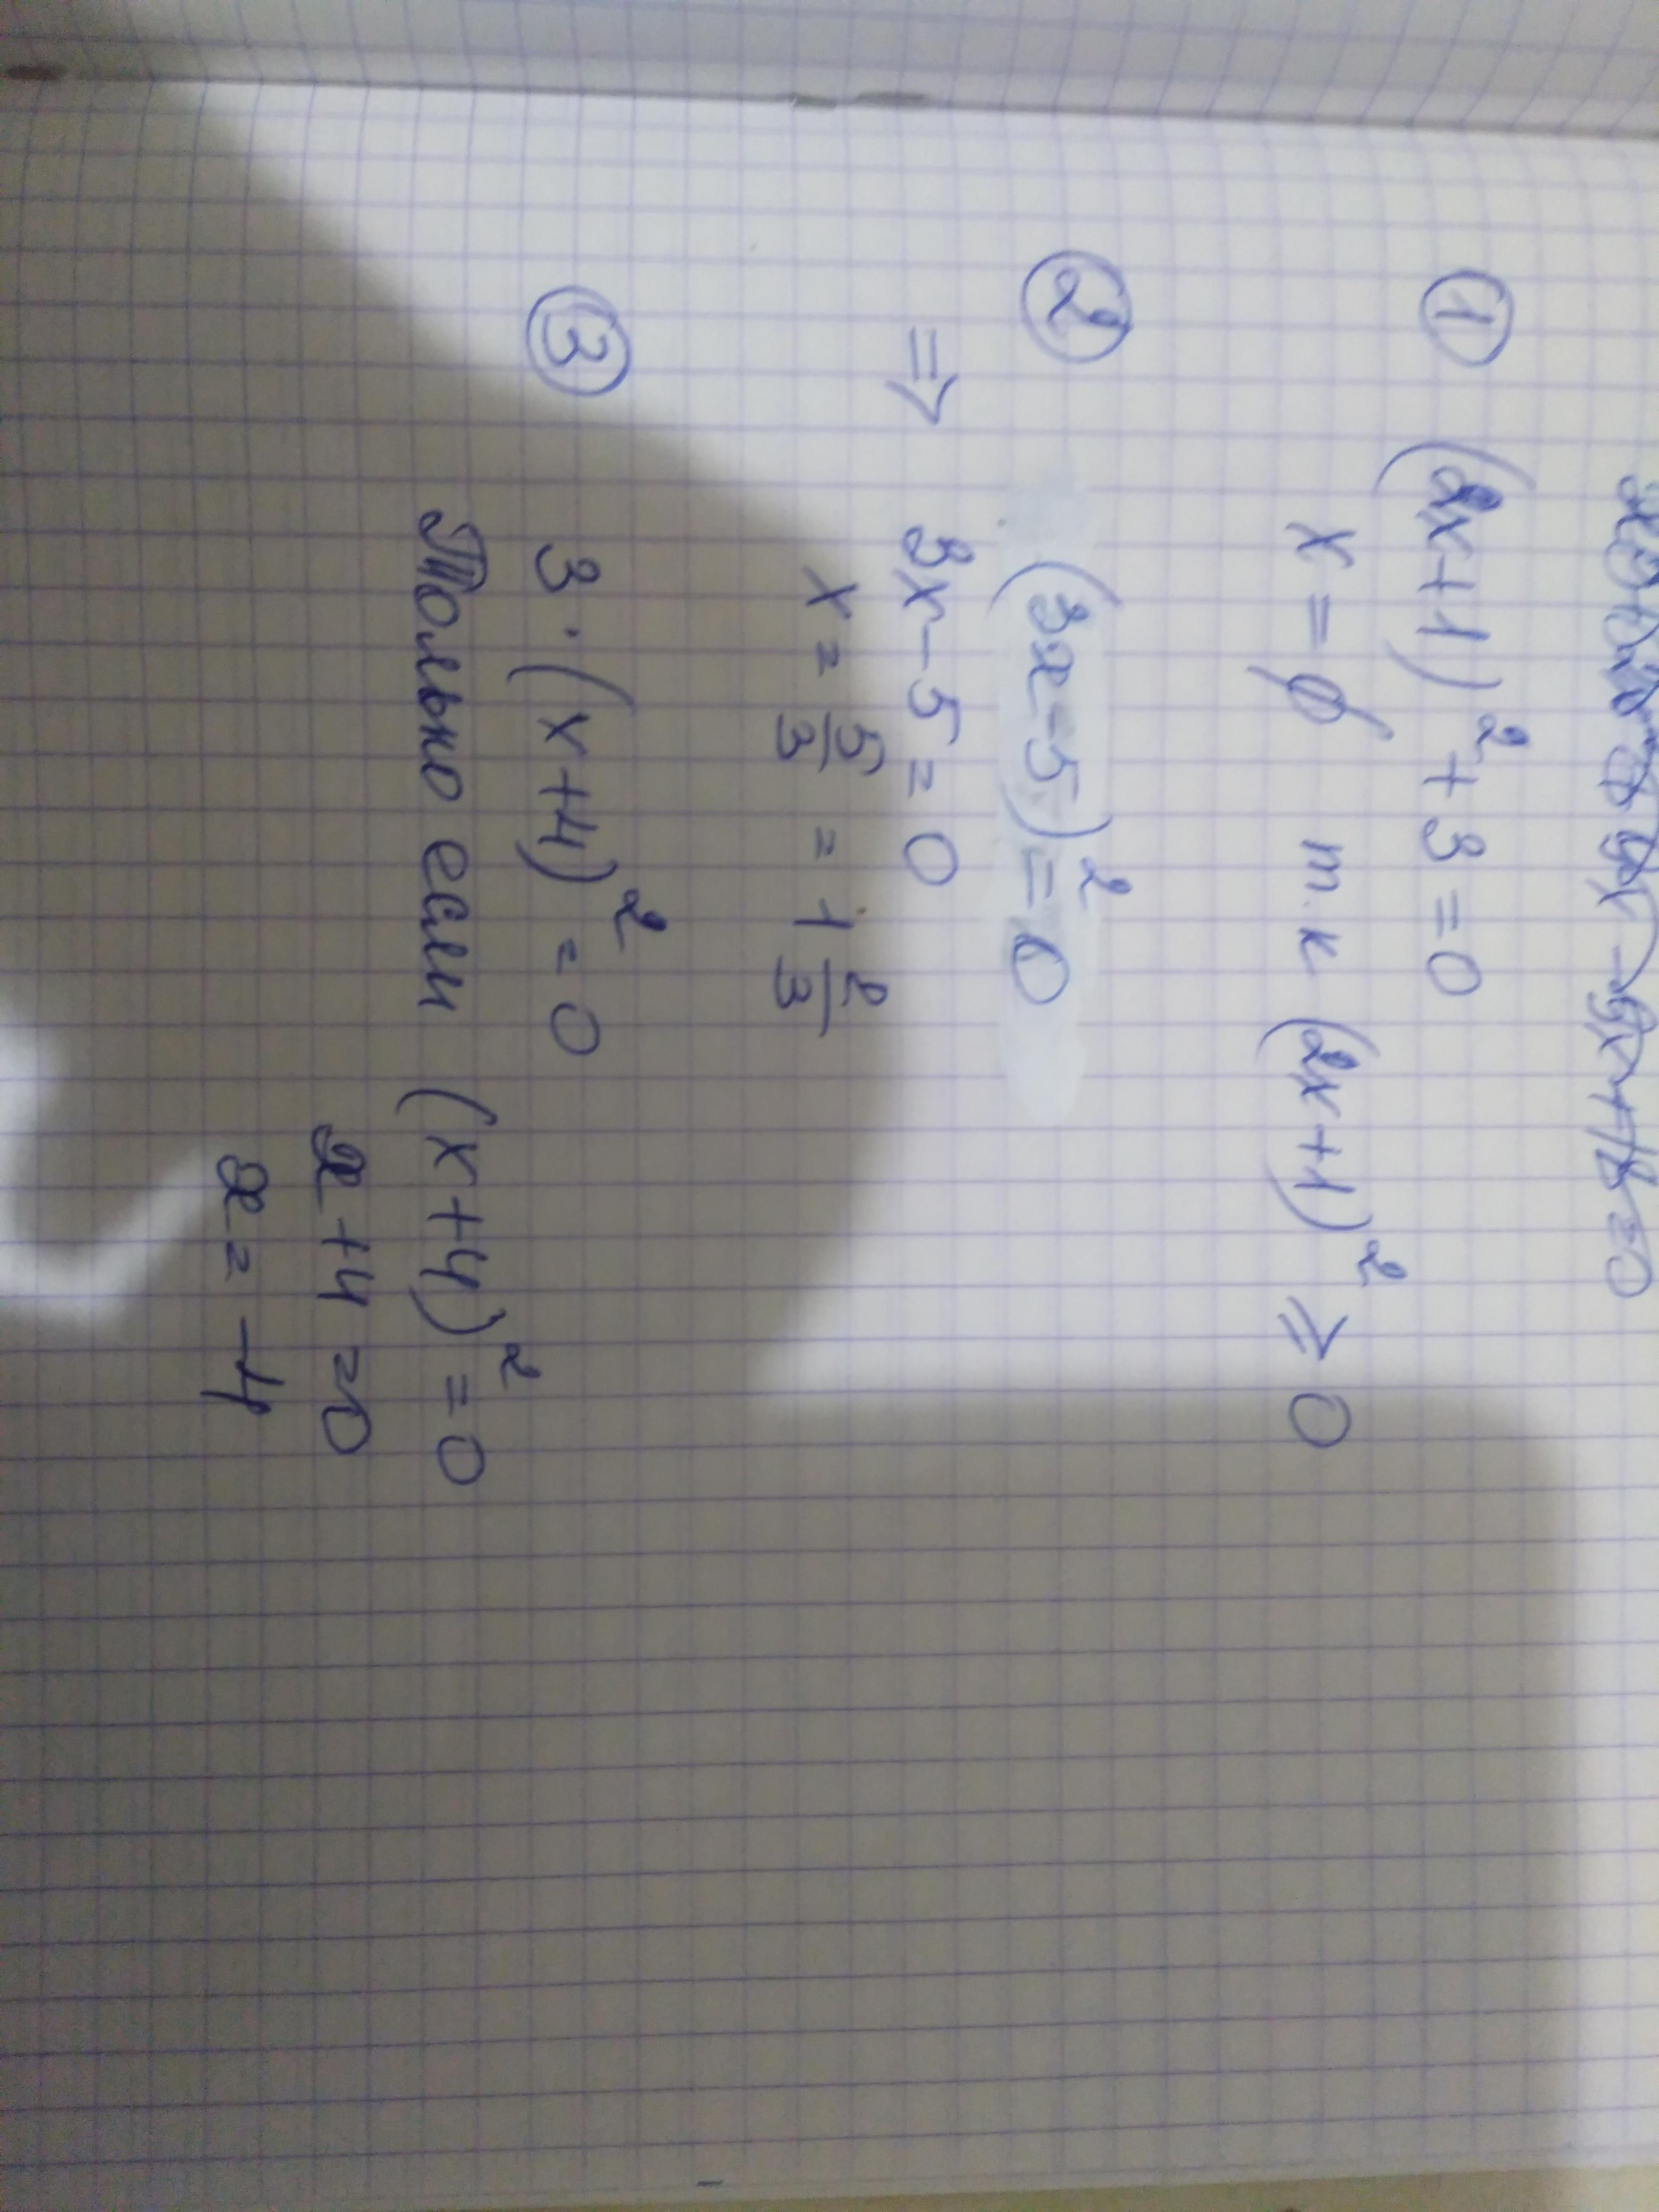 ① (2x+1)² + 3 = 0
x = ∅ т.к (2x+1)² ⩾ 0
② (3x-5)² = 0
⇒ 3x-5=0
x = 5/3 = 1 2/3
③ 3·(x+4)² = 0
Только если (x+4)² = 0
x+4=0
x = -4